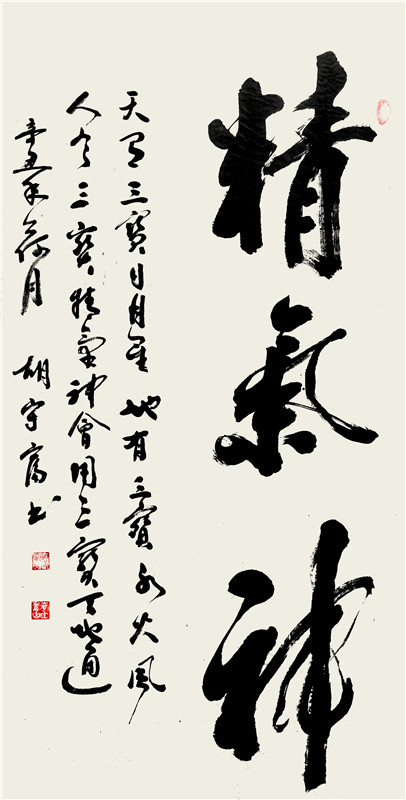 精氣神
天有三寶日月星地有三寶水火風
人有三寶精氣神會用三寶天地通
辛丑年荷月 胡守富书